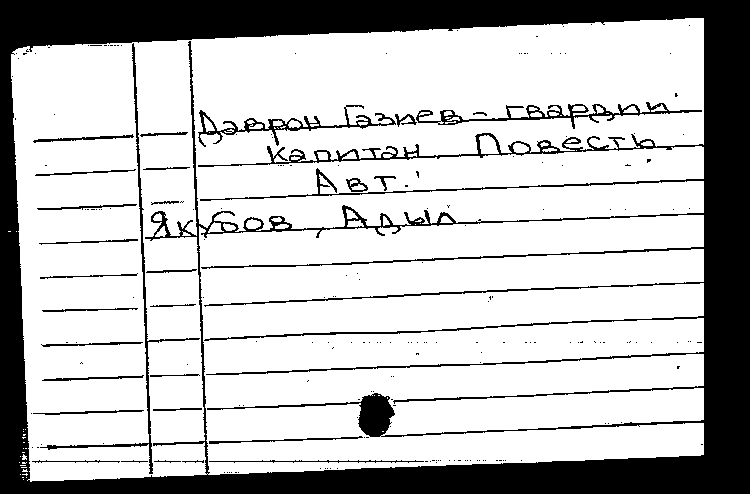 Даврон Газиев - гвардии
капитан. Повесть.
Авт.:
Якубов, Адыл